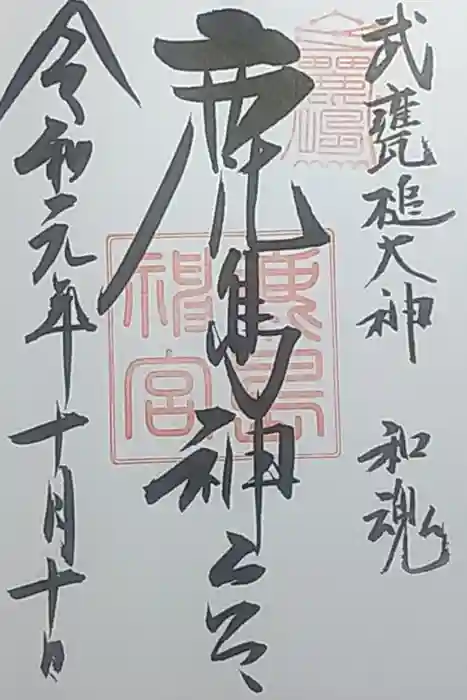 武甕槌大神 和魂
鹿島神宮
令和元年十月十日
鹿島
神宮